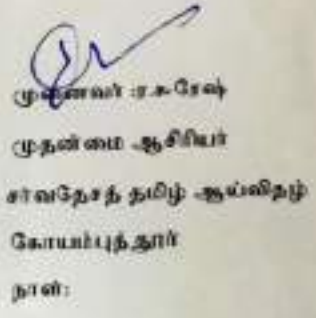 முனைவர் :ர.சுரேஷ்
முதன்மை ஆசிரியர்
சர்வதேசத் தமிழ் ஆய்விதழ்
கோயம்புத்தூர்
நாள்: